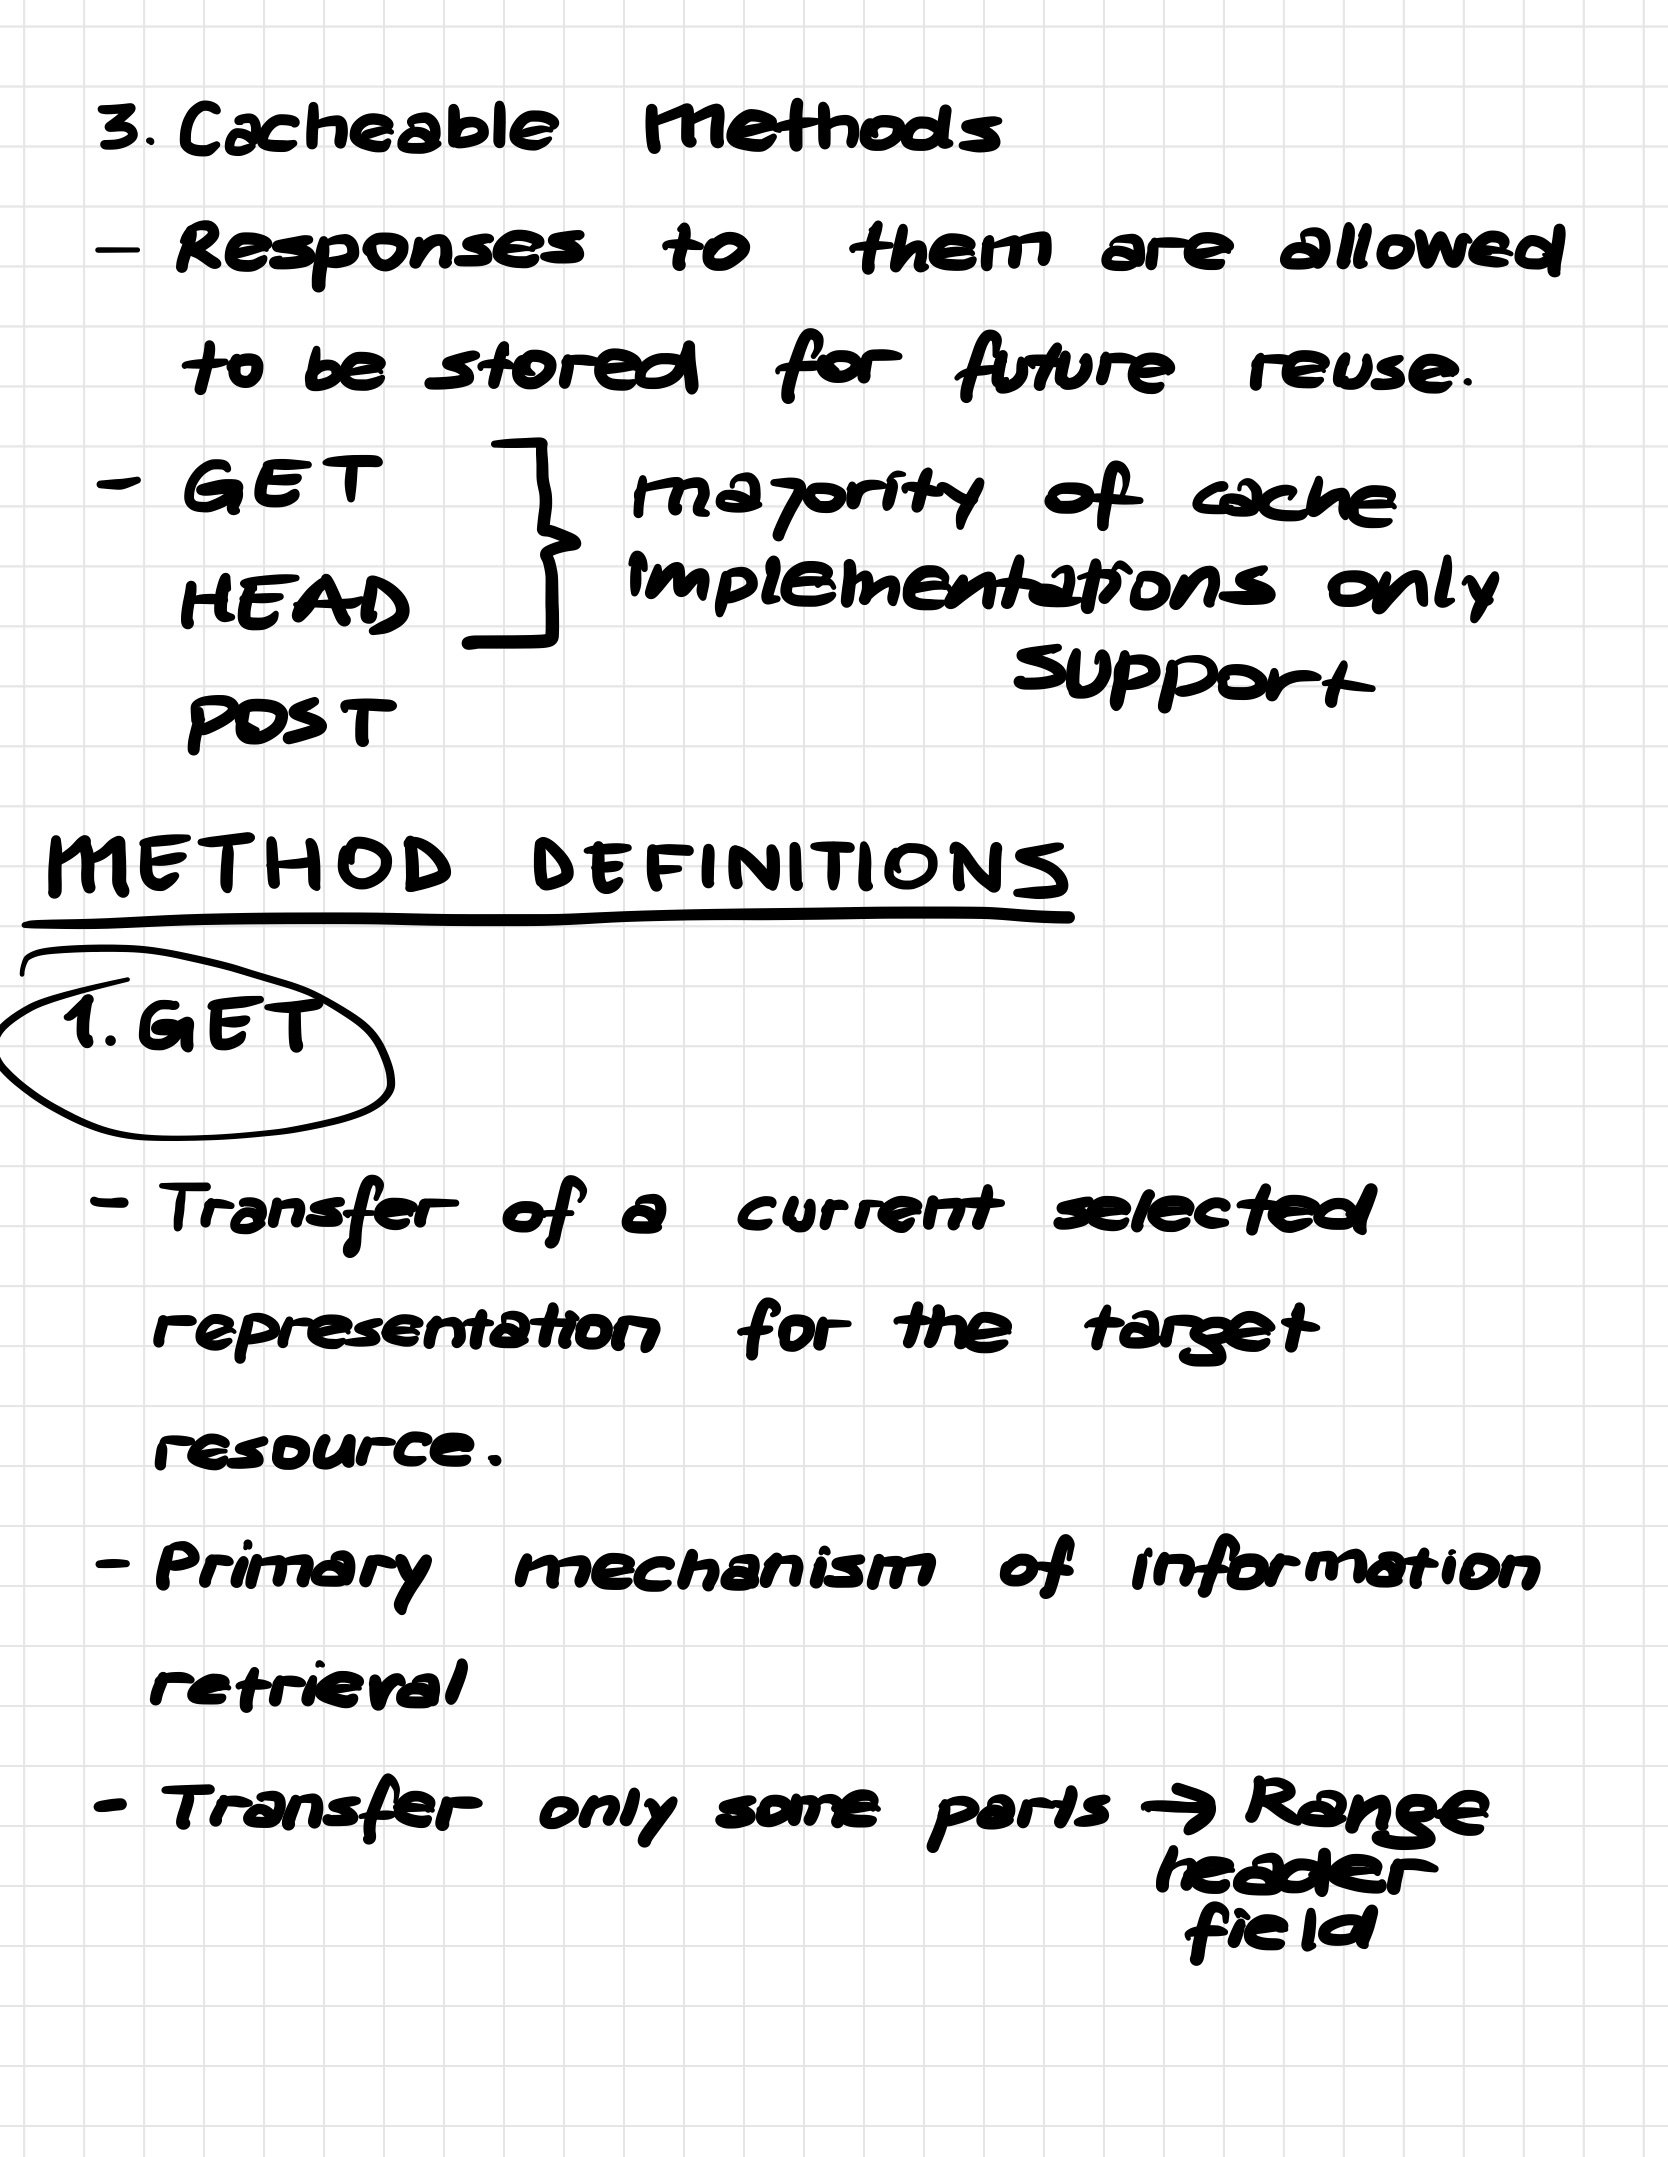 3. Cacheable Methods
- Responses to them are allowed
to be stored for future reuse.
- GET
HEAD
POST
majority of cache
implementations only
support
METHOD DEFINITIONS
1. GET
- Transfer of a current selected
representation for the target
resource.
- Primary mechanism of information
retrieval
- Transfer only some parts → Range
header
field